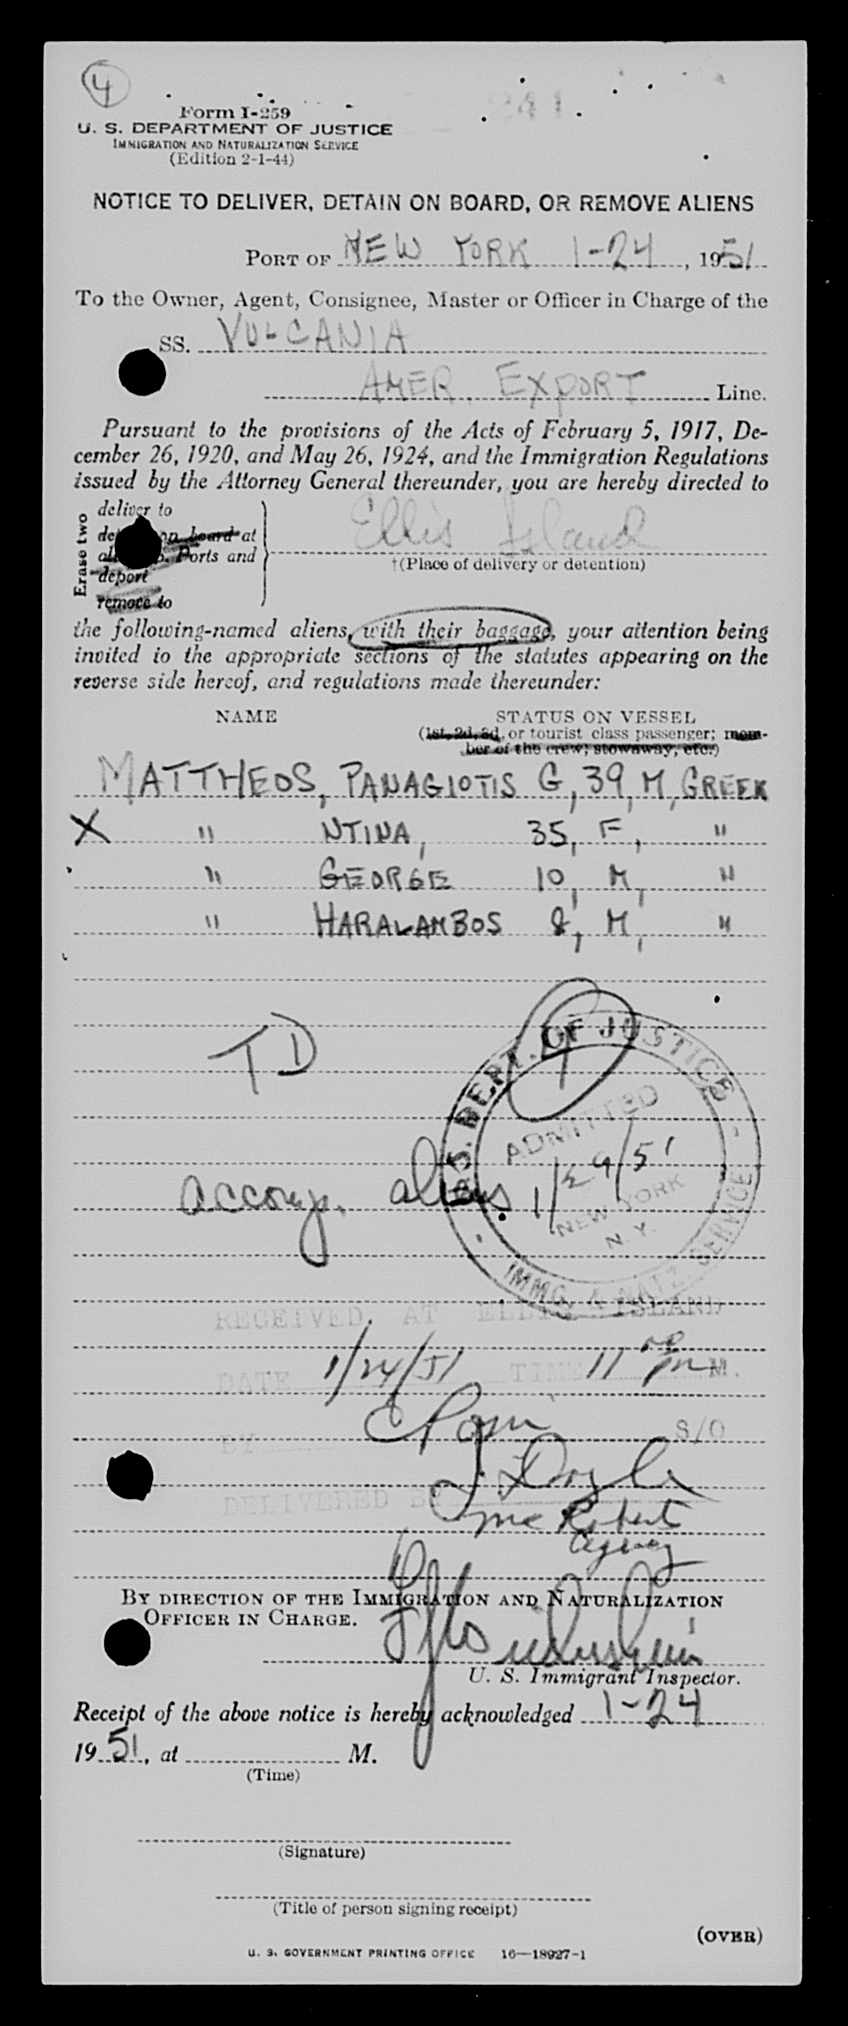 4
Form I-259
U. S. DEPARTMENT OF JUSTICE
IMMIGRATION AND NATURALIZATION SERVICE
(Edition 2-1-44)
NOTICE TO DELIVER, DETAIN ON BOARD, OR REMOVE ALIENS
PORT OF NEW YORK 1-24, 1951
To the Owner, Agent, Consignee, Master or Officer in Charge of the
SS. VULCANIA
AMER. EXPORT Line.
Pursuant to the provisions of the Acts of February 5, 1917, De-
cember 26, 1920, and May 26, 1924, and the Immigration Regulations
issued by the Attorney General thereunder, you are hereby directed to
Erase two
deliver to
on board at
Ports and
deport
remove to
Ellis Island
†(Place of delivery or detention)
the following-named aliens, with their baggage, your attention being
invited to the appropriate sections of the statutes appearing on the
reverse side hereof, and regulations made thereunder:
NAME STATUS ON VESSEL
(1st, 2d, 3d, or tourist class passenger; mem-
ber of the crew; stowaway, etc.)
MATTHEOS, PANAGIOTIS G, 39, M, GREEK
X " NTINA, 35, F, "
" GEORGE 10, M, "
" HARALAMBOS 8, M, "
TD
U.S. DEPT. OF JUSTICE
ADMITTED
1/29/51
NEW YORK
N. Y.
IMMG. & NATZ. SERVICE
accomp. aliens
RECEIVED AT ELLIS ISLAND
DATE 1/24/51 TIME 11 PM M.
BY S/O
DELIVERED BY J. Doyle
Mc Robert
Agency
BY DIRECTION OF THE IMMIGRATION AND NATURALIZATION
OFFICER IN CHARGE.
U. S. Immigrant Inspector.
Receipt of the above notice is hereby acknowledged 1-24
1951, at M.
(Time)
(Signature)
(Title of person signing receipt)
(OVER)
U. S. GOVERNMENT PRINTING OFFICE 16—18927-1